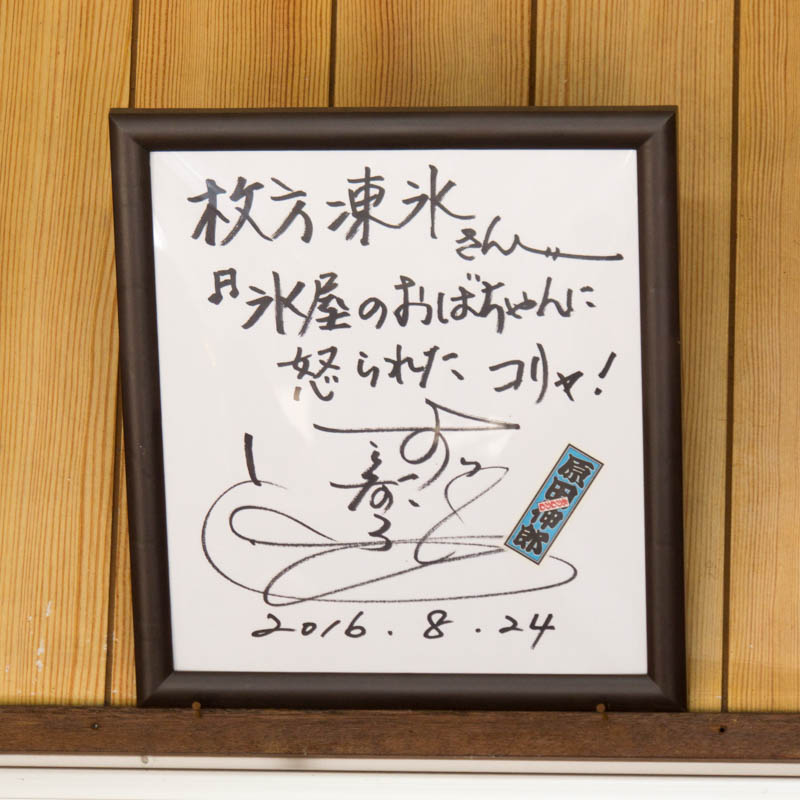 枚方凍氷さん
♬氷屋のおばちゃんに
怒られた コリャ!
原田伸郎
2016.8.24